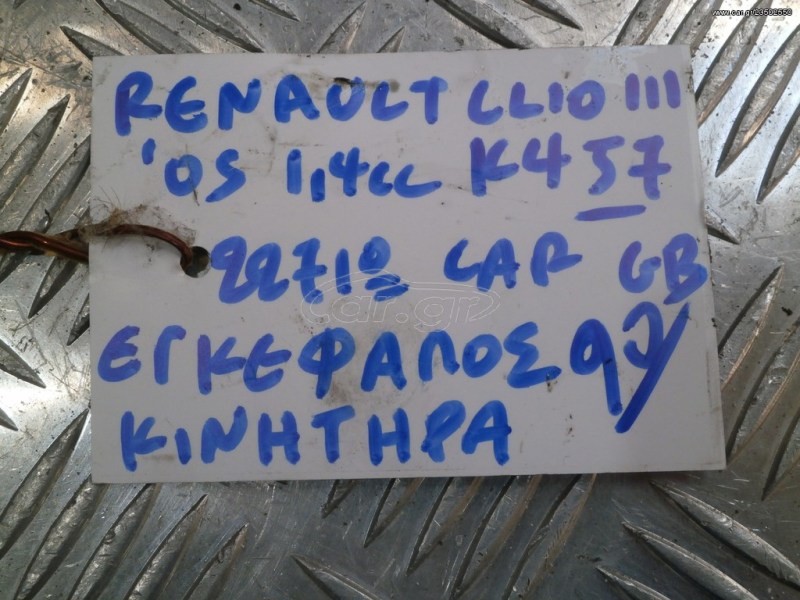 www.car.gr/23502550
RENAULT CLIO III
'05 1,4cc K4J7
2271º CAR GB
car.gr
ΕΓΚΕΦΑΛΟΣ
ΚΙΝΗΤΗΡΑ